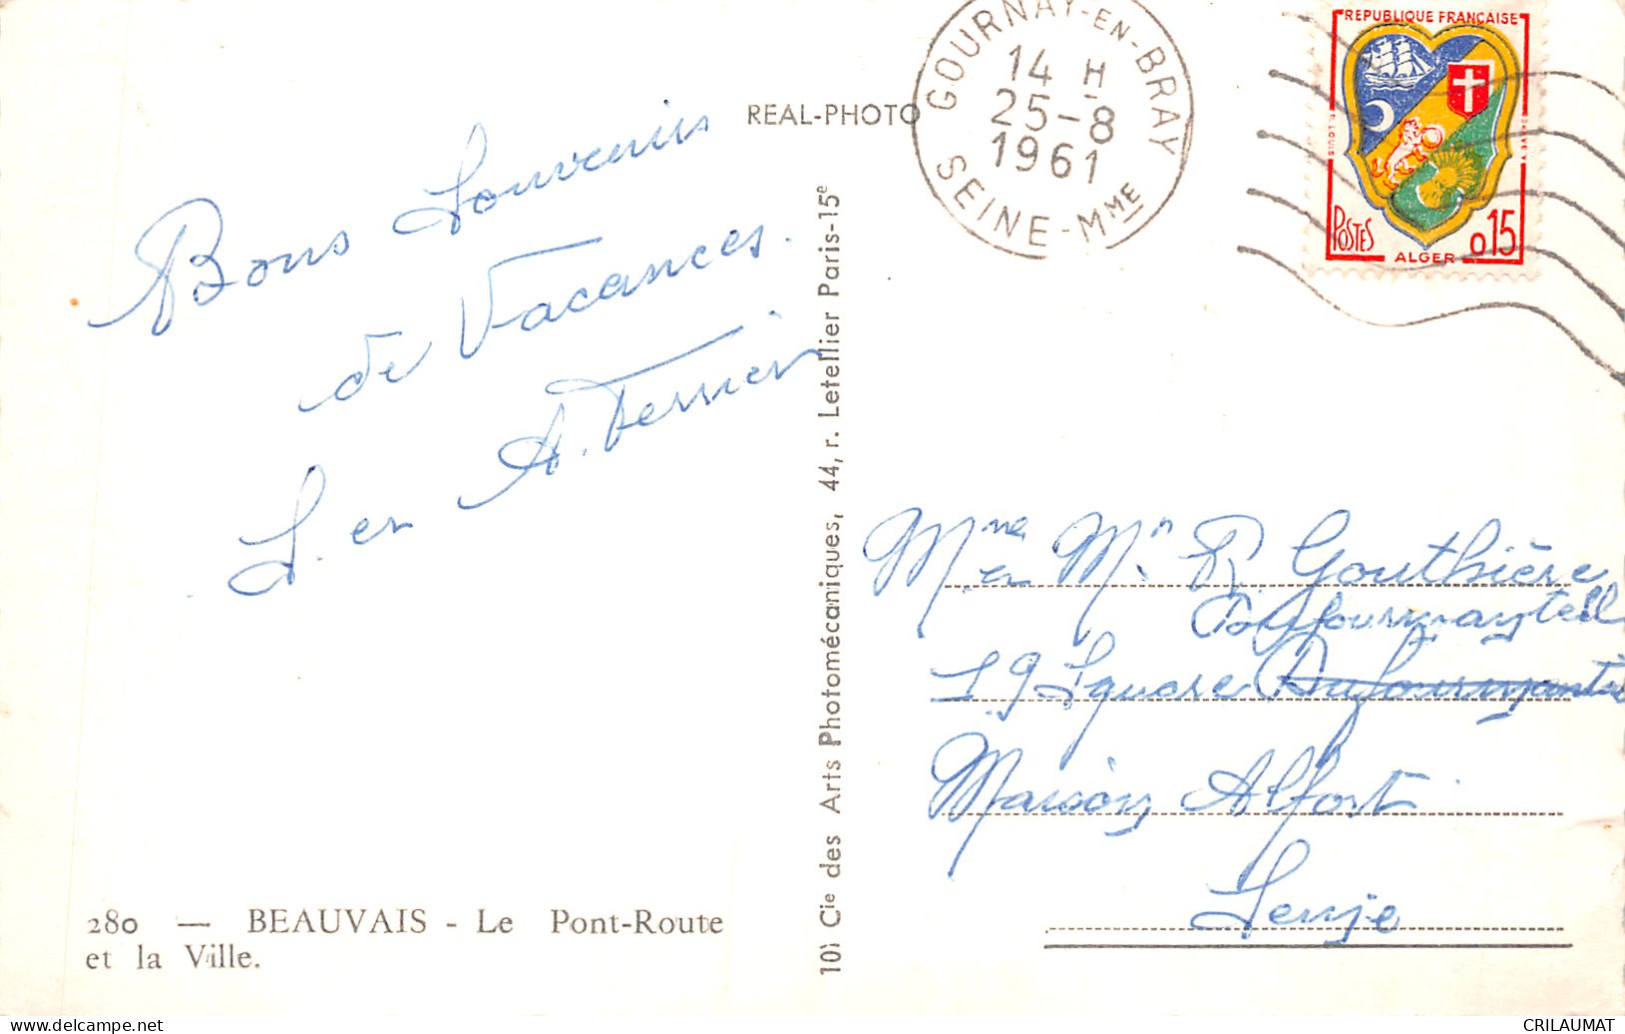 Bons Souvenirs
de Vacances.
S. et A. Terrier
280 — BEAUVAIS - Le Pont-Route
et la Ville.
REAL-PHOTO
10) Cie des Arts Photomécaniques, 44, r. Letellier Paris-15e
GOURNAY-EN-BRAY
14 H
25-8
1961
SEINE-MME
REPUBLIQUE FRANÇAISE
POSTES
ALGER
0,15
Mme et Mr R Gouthière
19 Square
Maison Alfort
Seine
CRILAUMAT